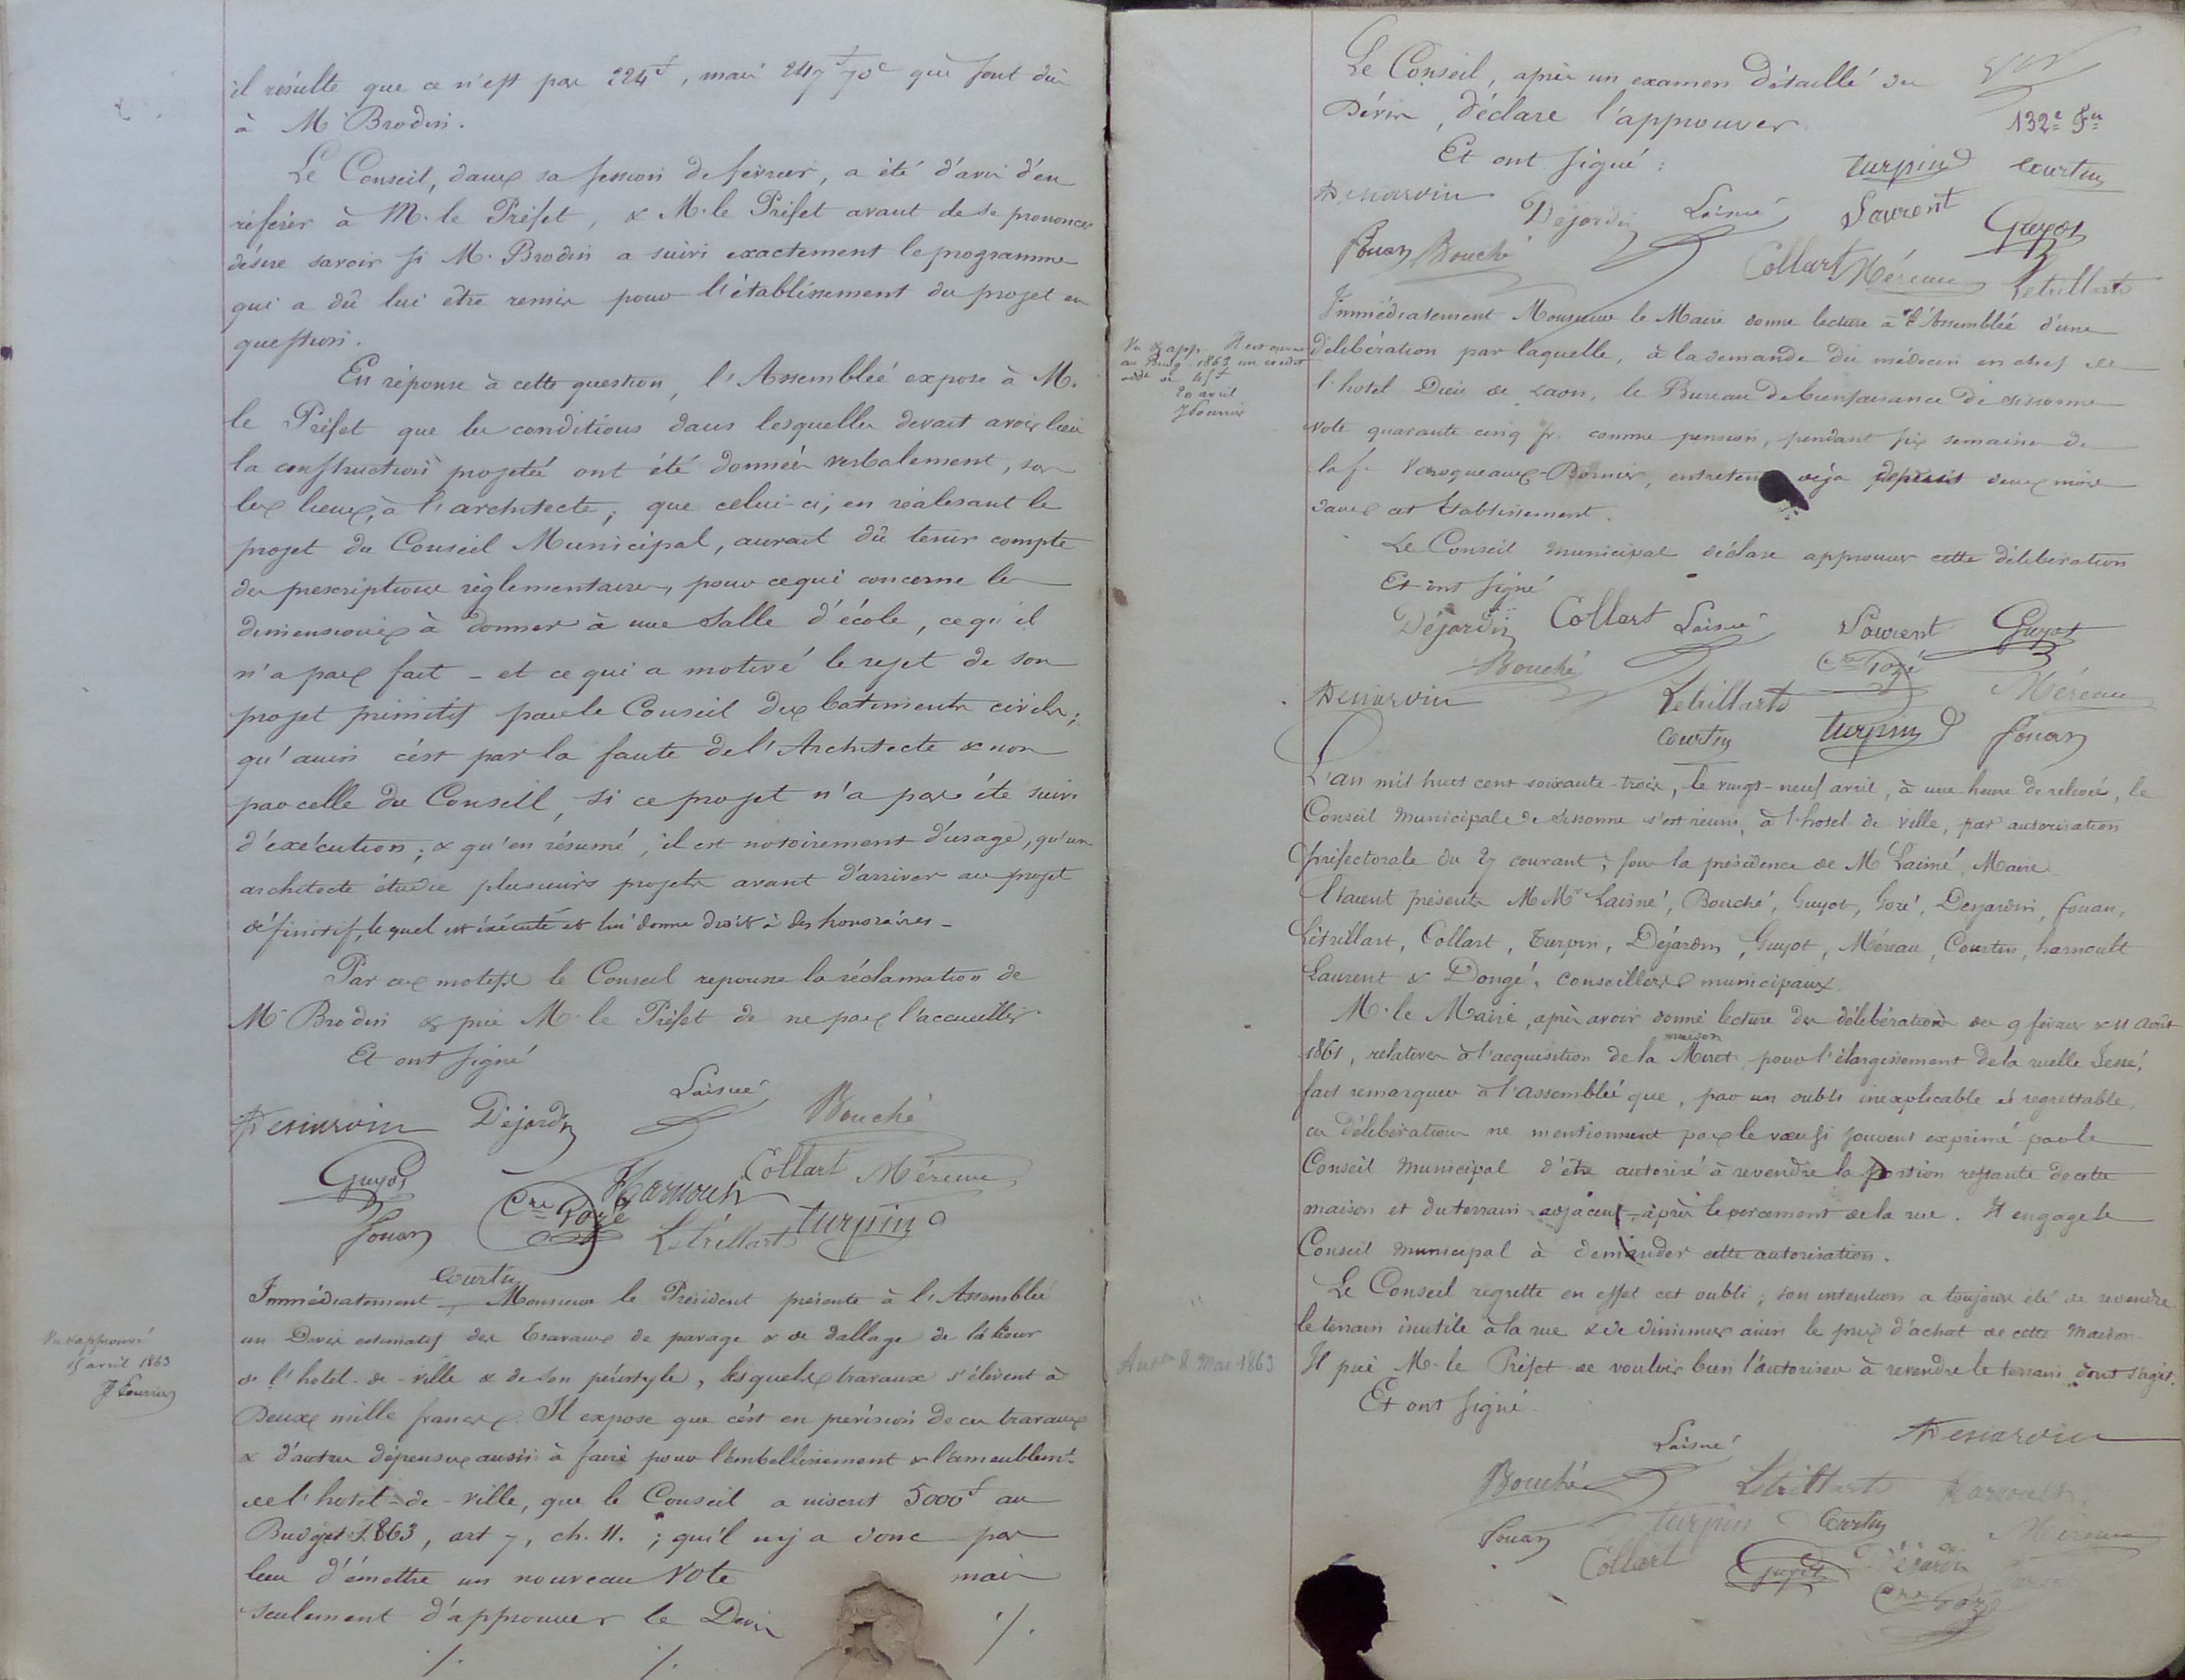 il résulte que ce n'est pas 224f, mais 247f 70c qui sont dûs
à M. Brodin.
Le Conseil, dans sa session de février, a été d'avis d'en
référer à M. le Préfet, & M. le Préfet avant de se prononcer
désire savoir si M. Brodin a suivi exactement le programme
qui a dû lui être remis pour l'établissement du projet en
question.
En réponse à cette question, l'Assemblée expose à M.
le Préfet que les conditions dans lesquelles devait avoir lieu
la construction projetée ont été données verbalement, sur
les lieux, à l'architecte; que celui-ci, en réalisant le
projet du Conseil Municipal, aurait dû tenir compte
des prescriptions règlementaires, pour ce qui concerne les
dimensions à donner à une Salle d'école, ce qu'il
n'a pas fait - et ce qui a motivé le rejet de son
projet primitif par le Conseil des batiments civils;
qu'ainsi c'est par la faute de l'Architecte & non
par celle du Conseil, si ce projet n'a pas été suivi
d'exécution; & qu'en résumé, il est notoirement d'usage, qu'un
architecte étudie plusieurs projets avant d'arriver au projet
définitif, lequel est exécuté et lui donne droit à des honoraires -
Par ces motifs le Conseil repousse la réclamation de
M. Brodin & prie M. le Préfet de ne pas l'accueillir.
Et ont signé
Laisné
Déjardin Bouché
Guyot Harnoult Collart Méreau
Fouan Cre Gozé Létrillart turpin
Courtin
Immédiatement, Monsieur le Président présente à l'Assemblée
un Devis estimatif des travaux de pavage & de dallage de la Cour
de l'hotel-de-ville & de son péristyle, lesquels travaux s'élèvent à
Deux mille francs. Il expose que c'est en prévision de ces travaux
& d'autres dépenses aussi à faire pour l'embellissement & l'ameublemt
de l'hotel-de-ville, que le Conseil a inscrit 5000f au
Budget 1863, art 7, ch. II. ; qu'il n'y a donc pas
lieu d'émettre un nouveau vote mais
seulement d'approuver le Devis ./.
./. ./.
Vu & approuvé
15 avril 1863
Le Conseil, après un examen détaillé du
Dévis, déclare l'approuver.
132e Fet
Et ont signé :
turpin Courtin
Déjardin Laisné Laurent Guyot
Fouan Bouché Collart Méreau Létrillart
Immédiatement Monsieur le Maire donne lecture à l'Assemblée d'une
délibération par laquelle, à la demande du médecin en chef de
l'hotel Dieu de Laon, le Bureau de bienfaisance de Sissonne
vote quarante-cinq fr. comme pension, pendant six semaines de
la fe Varoqueaux-Bonnier, entretenue déjà depuis deux mois
dans cet établissement.
Vu & app.
au Budg. 1863 un crédit
20 avril
Le Conseil municipal déclare approuver cette délibération
Et ont signé
Déjardin Collart Laisné Laurent Guyot
Bouché Cre Gozé
Létrillart Méreau
Courtin turpin Fouan
L'an mil huit cent soixante-trois, le vingt-neuf avril, à une heure de relevée, le
Conseil municipal de Sissonne s'est réuni, à l'hotel de ville, par autorisation
préfectorale du 27 courant; sous la présidence de M Laisné, Maire.
Etaient présents MMrs Laisné, Bouché, Guyot, Gozé, Dejardin, Fouan,
Létrillart, Collart, Turpin, Déjardin, Guyot, Méreau, Courtin, harnoult
Laurent & Dongé, conseillers municipaux.
M. le Maire, après avoir donné lecture des délibérations des 9 février & 11 Août
1861, relatives à l'acquisition de la maison Miret, pour l'élargissement de la ruelle Jessé,
fait remarquer à l'assemblée que, par un oubli inexplicable et regrettable,
ces délibérations ne mentionnent pas le vœu si souvent exprimé par le
Conseil municipal d'être autorisé à revendre la portion restante de cette
maison et du terrain adjacent, après le percement de la rue. Il engage le
Conseil municipal à demander cette autorisation.
Le Conseil regrette en effet cet oubli; son intention a toujours été de revendre
le terrain inutile à la rue & de diminuer ainsi le prix d'achat de cette maison.
Il prie M. le Préfet de vouloir bien l'autoriser à revendre le terrain dont s'agit.
Auton 8 Mai 1863
Et ont signé
Laisné
Bouché Létrillart Harnoult
Fouan turpin Courtin Méreau
Collart Guyot Déjardin
Cre Gozé